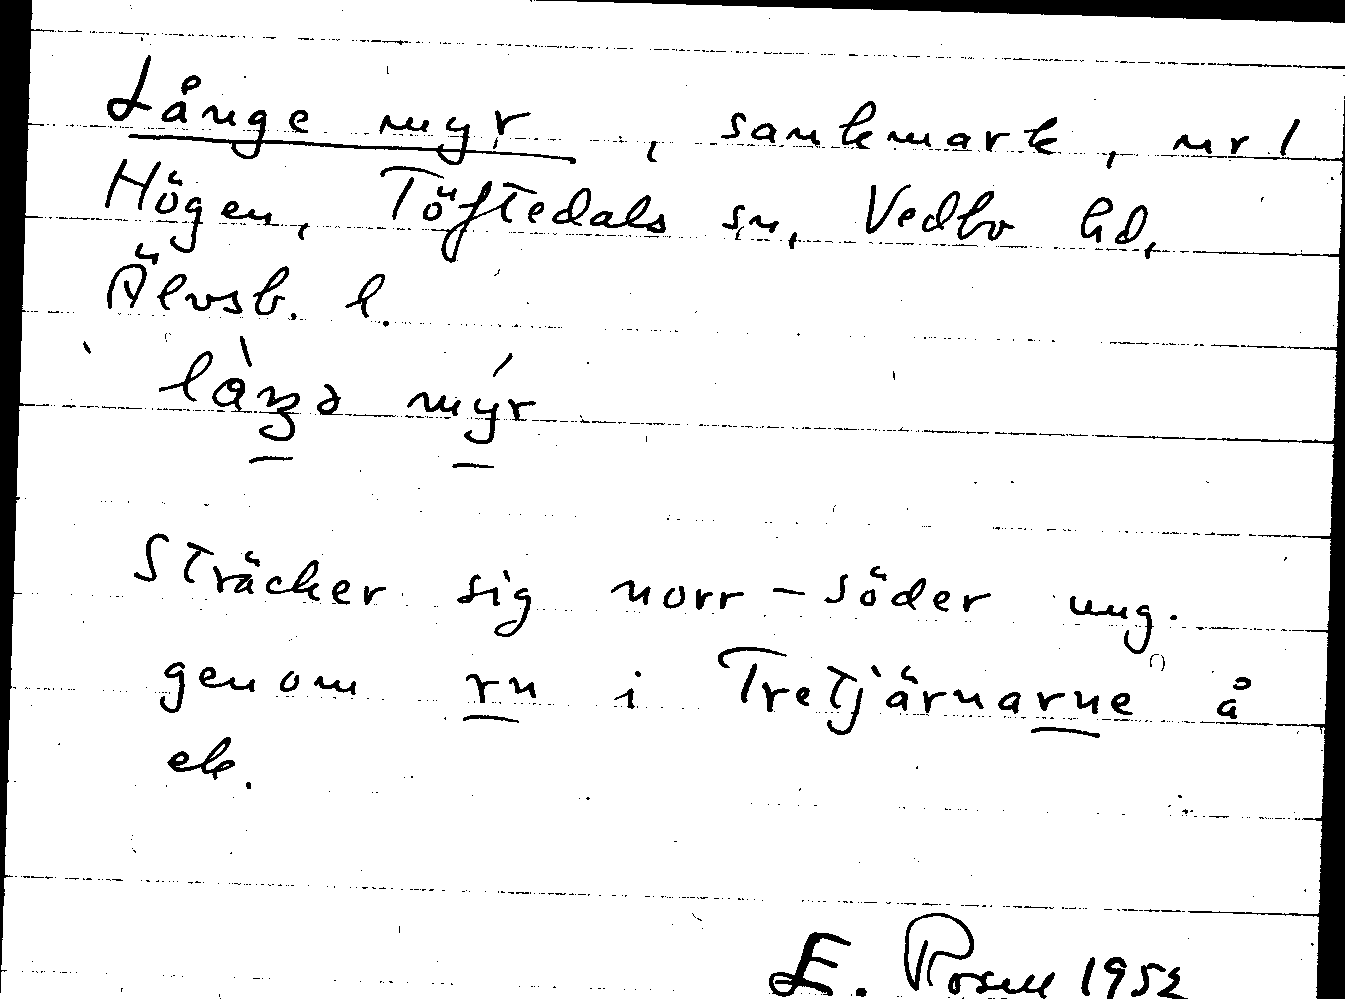 Långe myr, sankmark, nr 1
Högen, Töftedals sn, Vedbo hd,
Älvsb. l.
làŋə mýr
Sträcker sig norr – söder ung.
genom rn i Tretjärnarne å
ek.
E. Rosell 1952